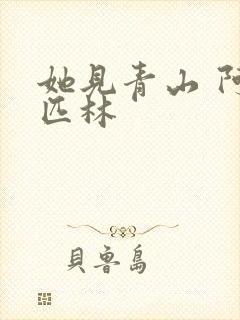 她見青山 阿
匹林
貝魯島